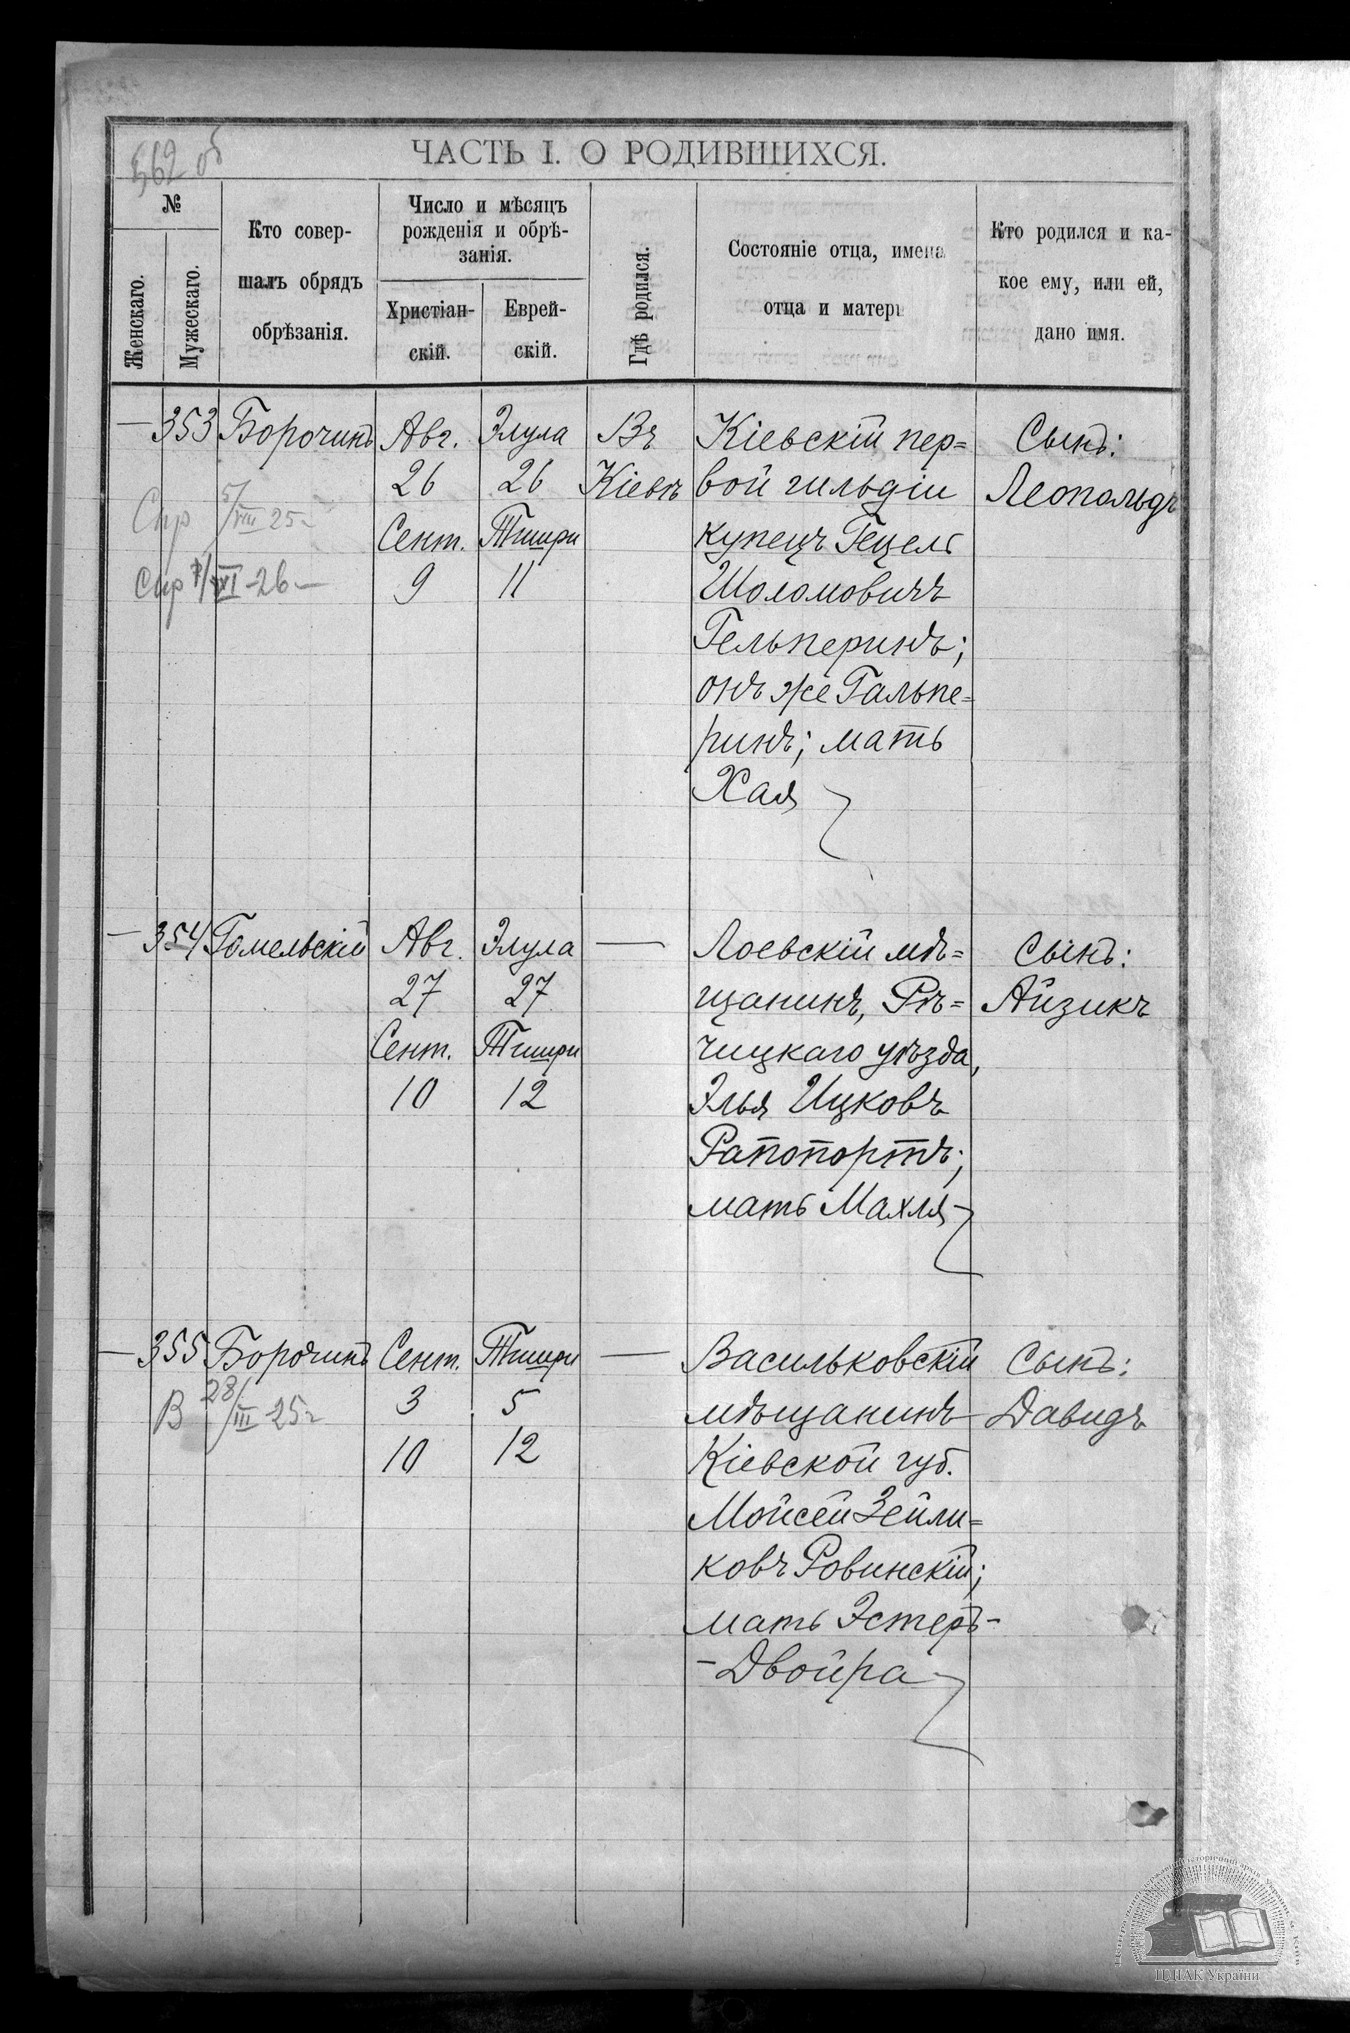 562 об
ЧАСТЬ I. О РОДИВШИХСЯ.
№
Женскаго.
Мужескаго.
Кто совер-
шалъ обрядъ
обрѣзанія.
Число и мѣсяцъ
рожденія и обрѣ-
занія.
Христіан-
скій.
Еврей-
скій.
Гдѣ родился.
Состояніе отца, имена
отца и матери
Кто родился и ка-
кое ему, или ей,
дано имя.
— 353 Борочинъ Авг. Элула Въ Кіевскій пер= Сынъ:
26 26 Кіевѣ вой гильдіи Леопольдъ
Спр 5/VIII 25 г Сент. Тишри купецъ Гецель
Спр /VI -26 — 9 11 Шоломовичъ
Гельперинъ;
онъ же Гальпе=
ринъ; мать
Хая
— 354 Гомельскій Авг. Элула — Лоевскій мѣ= Сынъ:
27 27 щанинъ, Рѣ= Айзикъ
Сент. Тишри чицкаго уѣзда,
10 12 Элья Ицковъ
Рапопортъ;
мать Махля
— 355 Борочинъ Сент. Тишри — Васильковскій Сынъ:
В 28/III -25 г 3 5 мѣщанинъ Давидъ
10 12 Кіевской губ.
Мойсей Зейли=
ковъ Ровинскій;
мать Эстеръ-
-Двойра
ЦДІАК України